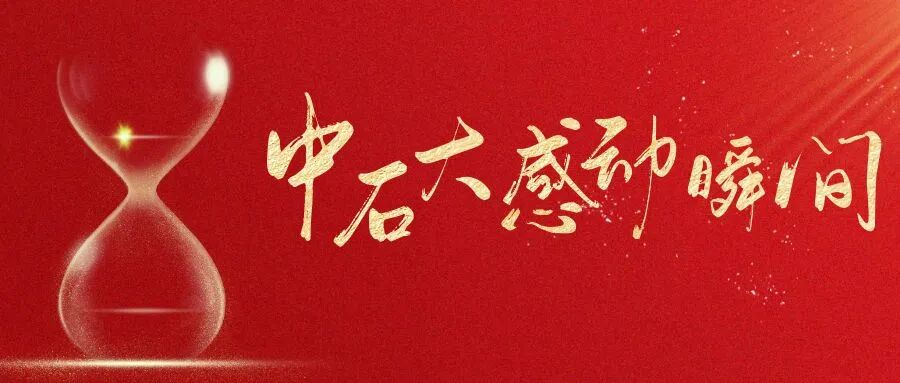 中石大感动瞬间